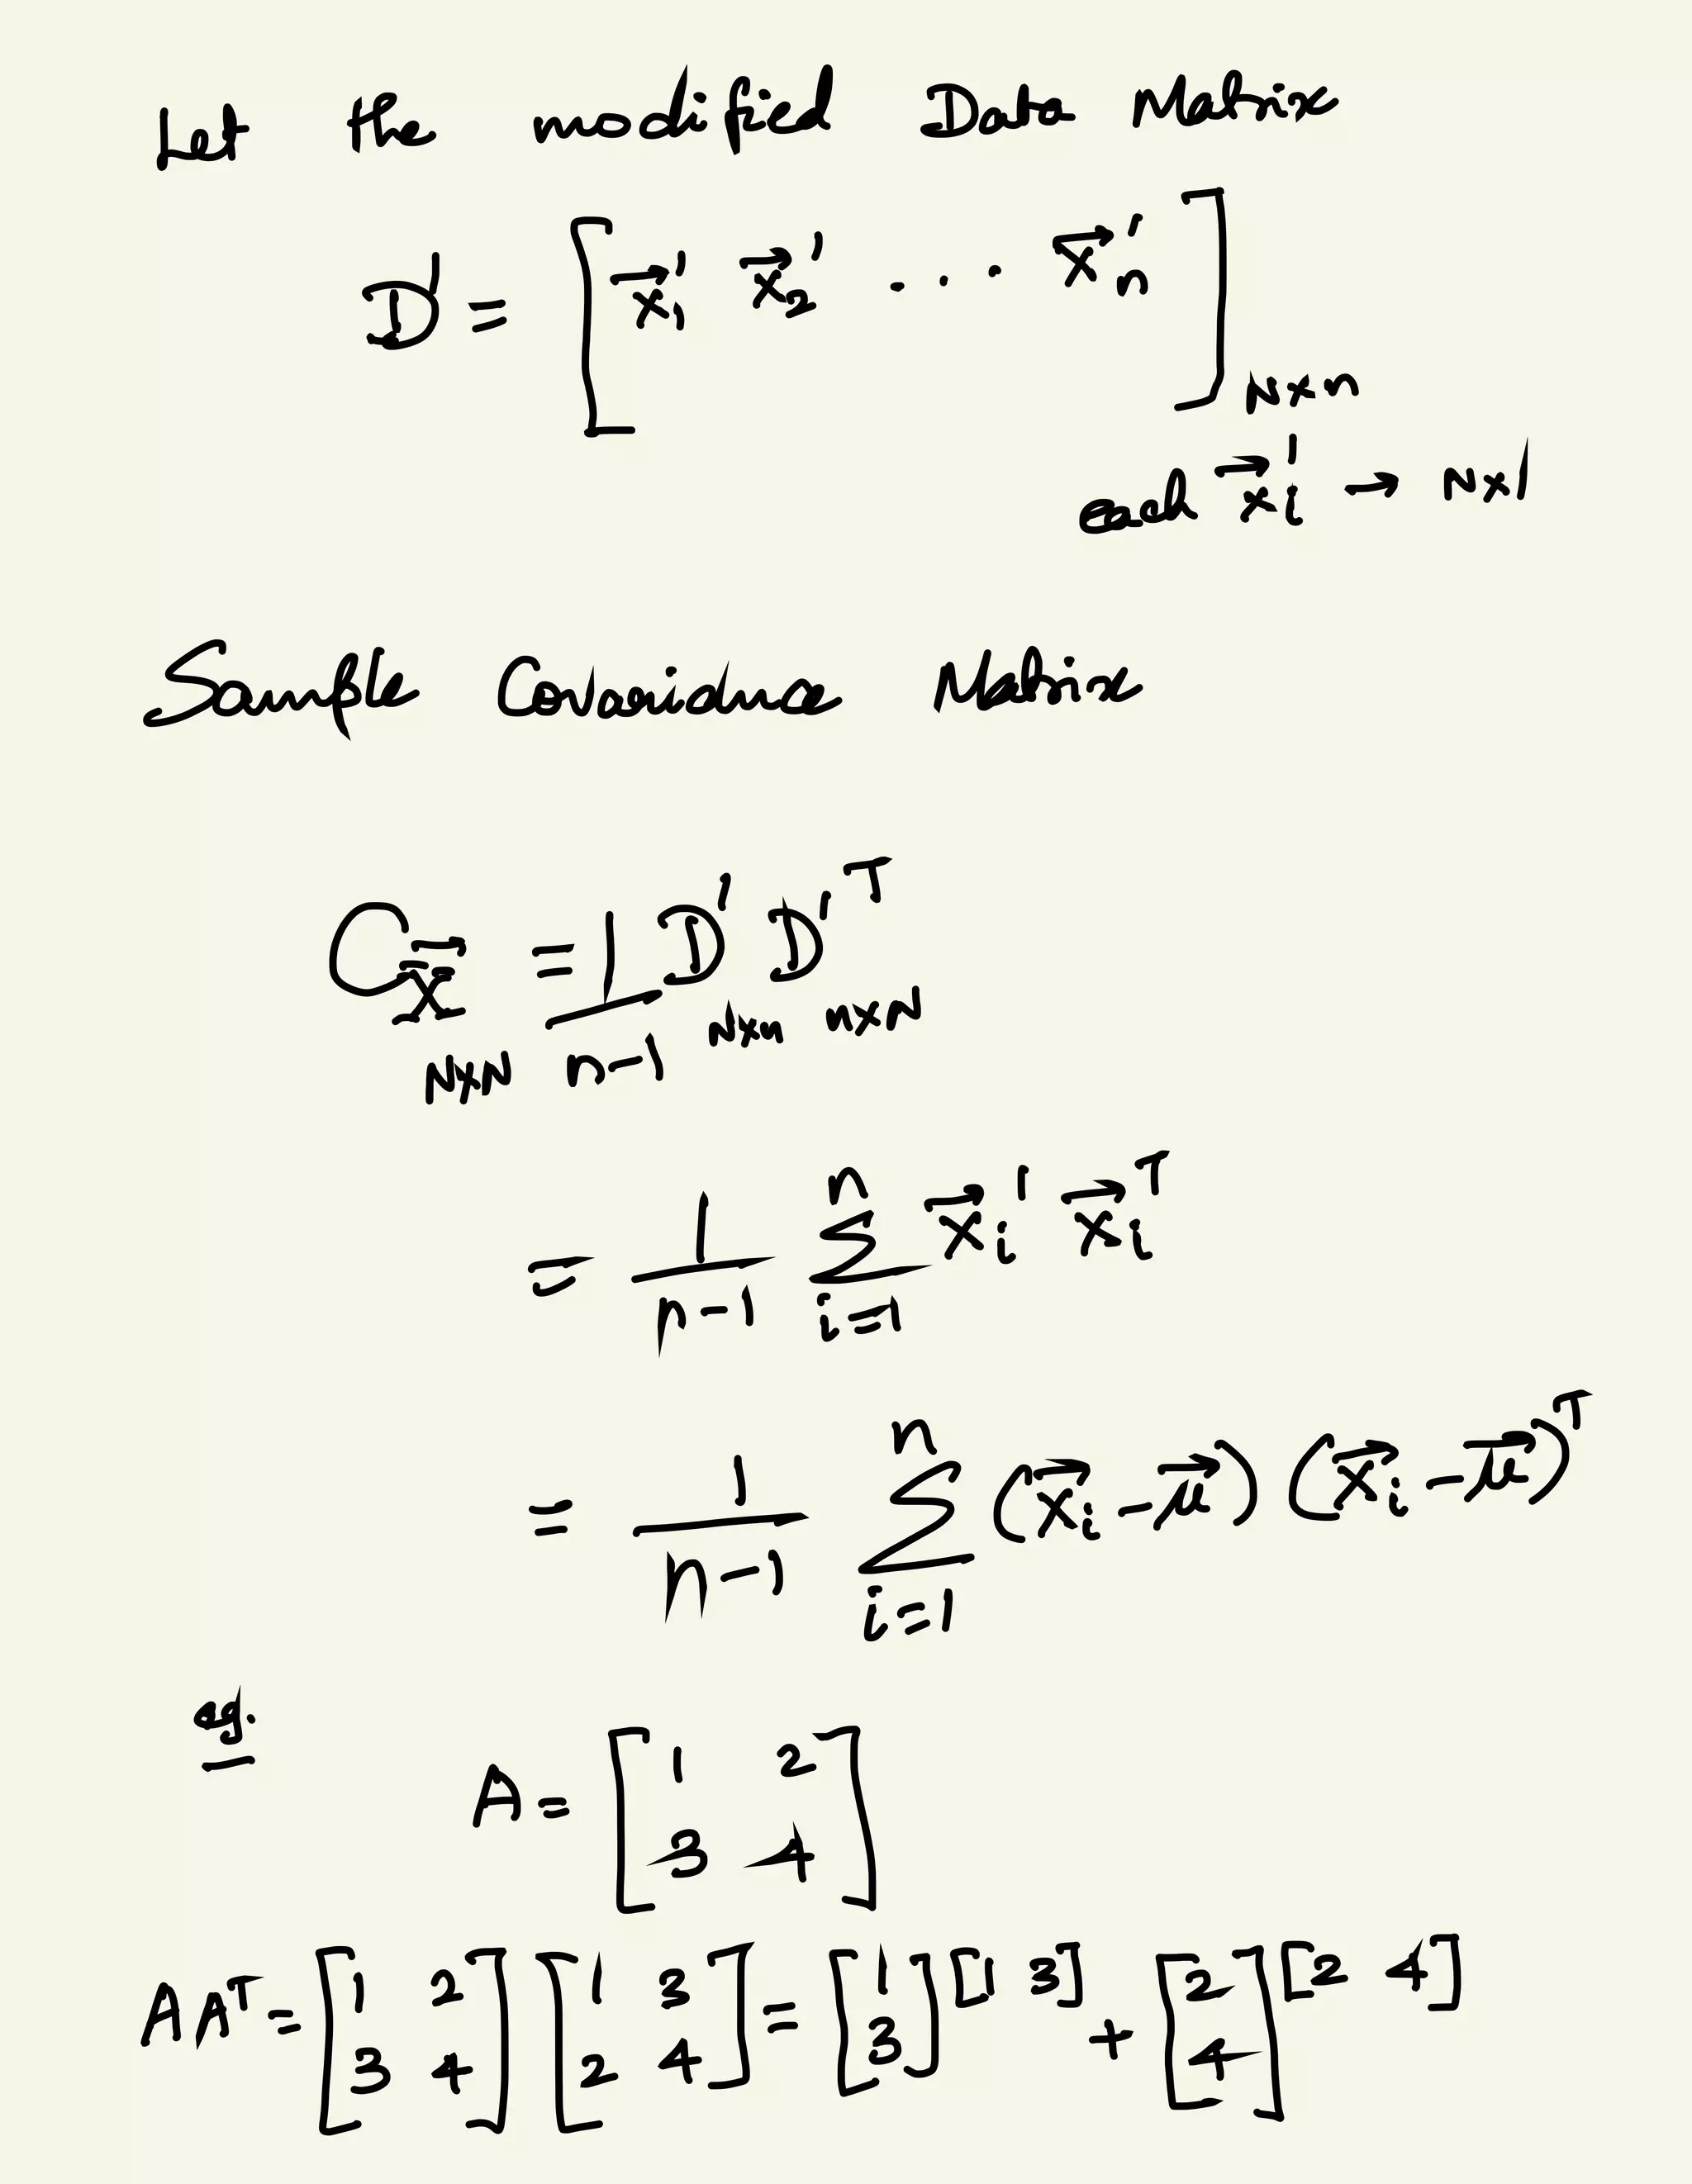 Let the modified Data Matrix
D' = [ x⃗₁' x⃗₂' . . . x⃗ₙ' ] N×n
each x⃗ᵢ' → N×1
Sample Covariance Matrix
C_X⃗ = 1/(n-1) D' D'ᵀ
N×N N×n n×N
= 1/(n-1) Σ_{i=1}^{n} x⃗ᵢ' x⃗ᵢᵀ
= 1/(n-1) Σ_{i=1}^{n} (x⃗ᵢ - μ⃗) (x⃗ᵢ - μ⃗)ᵀ
eg.
A = [1 2; 3 4]
AAᵀ = [1 2; 3 4] [1 3; 2 4] = [1; 3] [1 3] + [2; 4] [2 4]